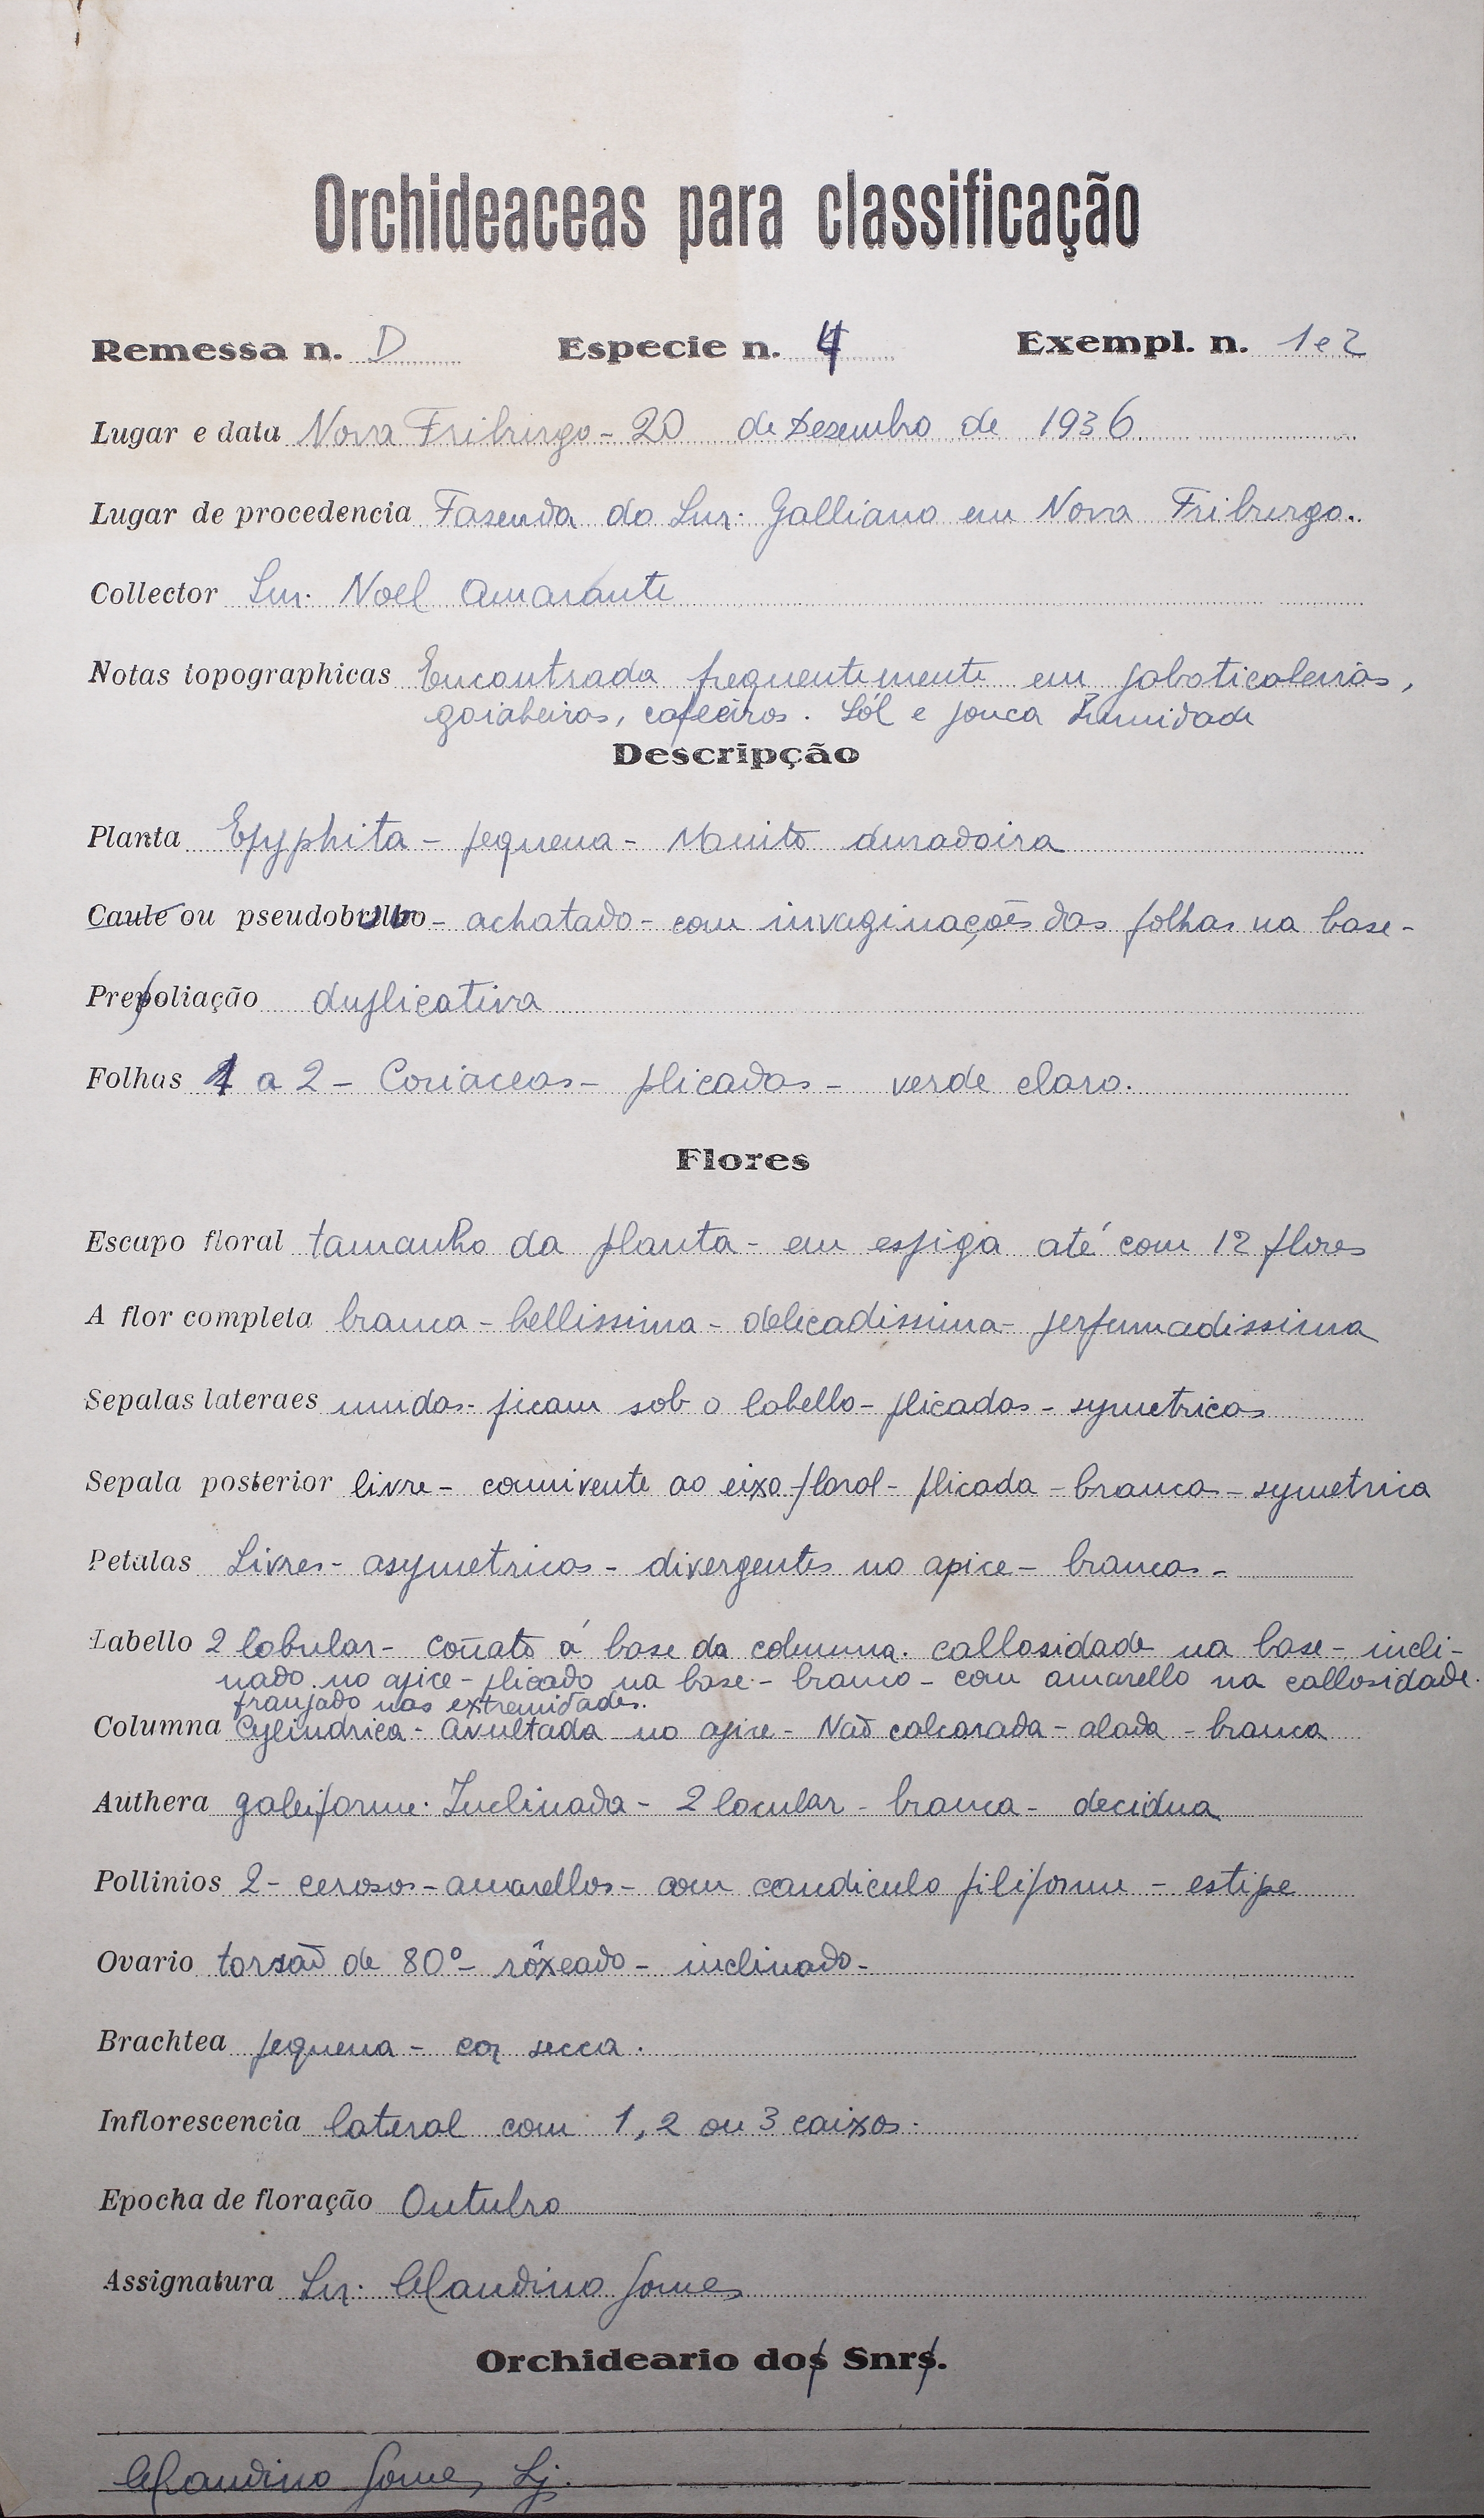 Orchideaceas para classificação
Remessa n. D Especie n. 4 Exempl. n. 1 e 2
Lugar e data Nova Friburgo - 20 de Dezembro de 1936
Lugar de procedencia Fazenda do Snr. Galliano em Nova Friburgo.
Collector Snr. Noel Amarante
Notas topographicas Encontrada frequentemente em jaboticabeiras,
goiabeiras, cafeeiros. Sól e pouca humidade
Descripção
Planta Epyphita - pequena - Muito duradoira
Caule ou pseudobulbo - achatado - com invaginações das folhas na base -
Prefoliação duplicativa
Folhas 1 a 2 - Coriaceas - plicadas - verde claro.
Flores
Escapo floral tamanho da planta - em espiga até com 12 flores
A flor completa branca - bellissima - delicadissima - perfumadissima
Sepalas lateraes unidas - ficam sob o labello - plicadas - symetricas
Sepala posterior livre - connivente ao eixo floral - plicada - branca - symetrica
Petalas Livres - asymetricas - divergentes no apice - brancas -
Labello 2 lobular - conato á base da columna. callosidade na base - incli-
nado no apice - plicado na base - branco - com amarello na callosidade.
franjado nas extremidades.
Columna Cylindrica - Avultada no apice - Não calcarada - alada - branca
Authera galeiforme. Inclinada - 2 locular - branca - decidua
Pollinios 2 - cerosos - amarellos - com caudiculo filiforme - estipe
Ovario torsão de 80º - rôxeado - inclinado -
Brachtea pequena - cor secca.
Inflorescencia lateral com 1, 2 ou 3 caixos.
Epocha de floração Outubro
Assignatura Snr. Clandino Gomes
Orchideario dos Snrs.
Clandino Gomes, Sj.